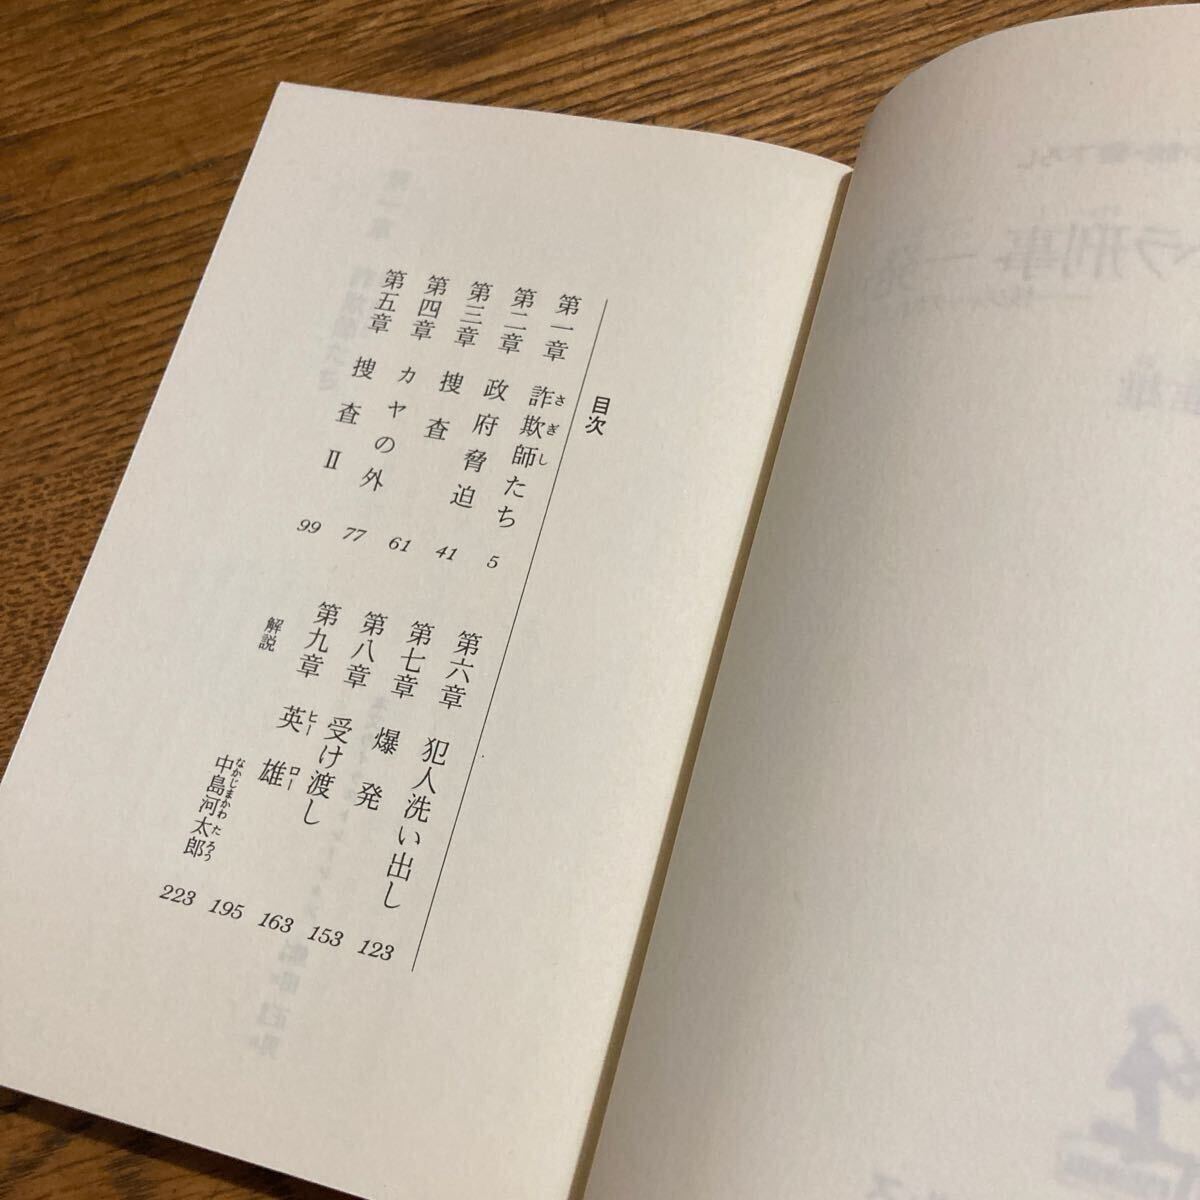 目次
第一章 詐欺師たち 5
さぎし
第二章 政府脅迫 41
第三章 捜査 61
第四章 カヤの外 77
第五章 捜査Ⅱ 99
第六章 犯人洗い出し 123
第七章 爆発 153
第八章 受け渡し 163
第九章 英雄 195
ヒーロー
解説 中島河太郎 223
なかじまかわたろう